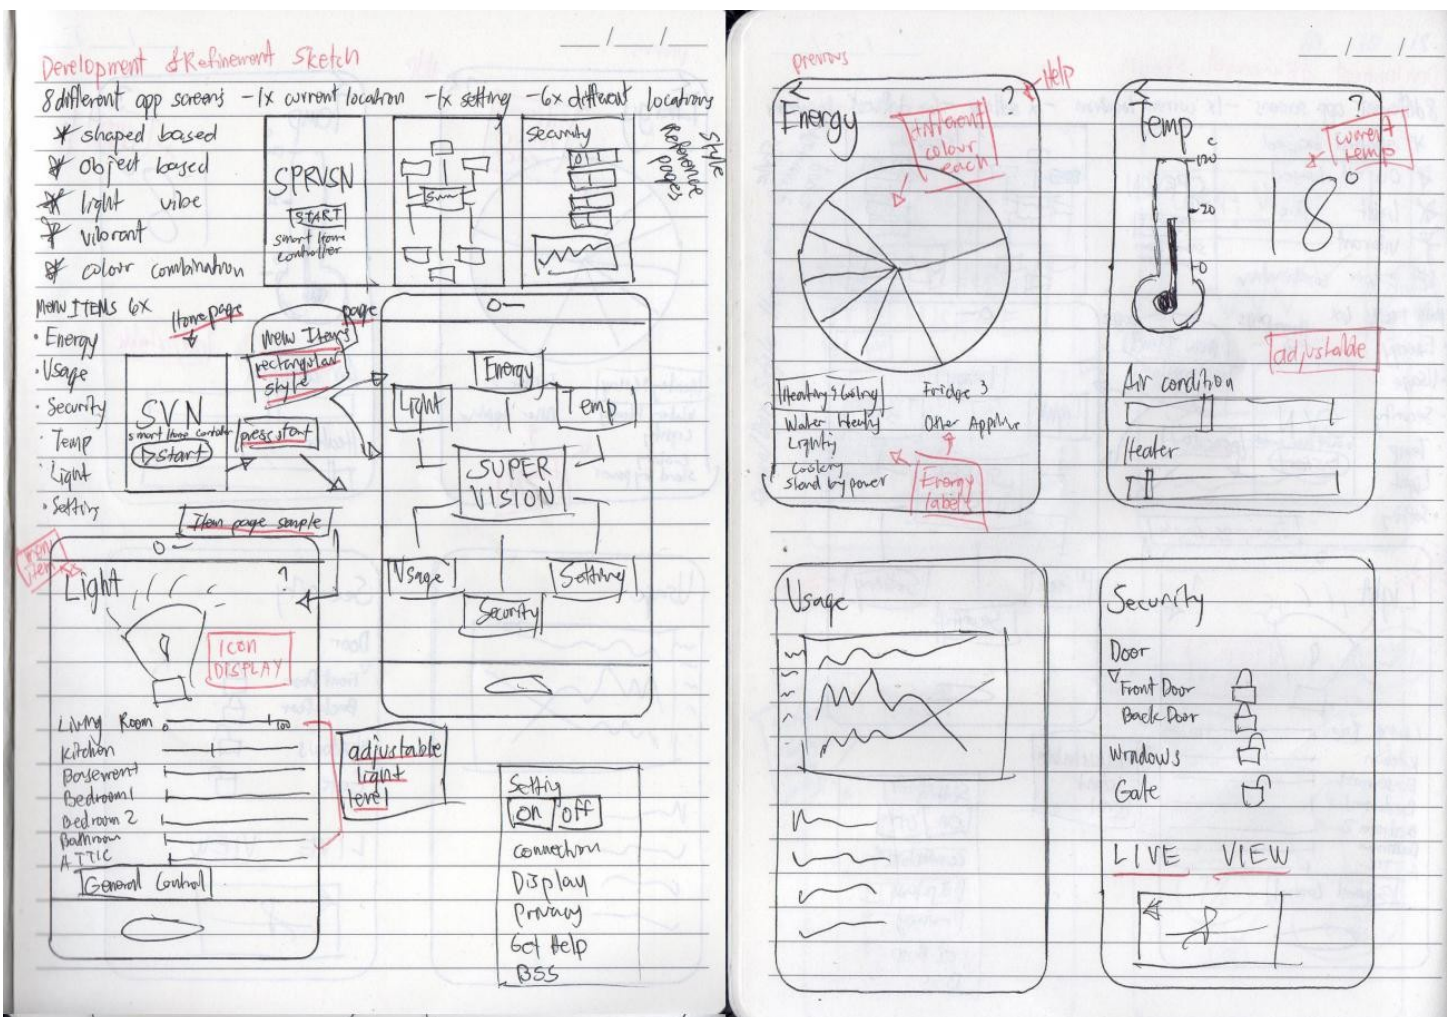 Development & Refinement Sketch
8 different app screens -1x current location -1x setting -6x different locations
* shaped based
* object based
* light vibe
* vibrant
* colour combination
SPRVSN
START
smart home
controller
Security
Style
Reference
pages
Menu ITEMS 6x
• Energy
• Usage
• Security
• Temp
• Light
• Setting
Home page
SVN
smart home controller
▷start
menu Items page
rectangular
style
press start
Item page sample
Energy
Light
Temp
SUPER
VISION
Usage
Setting
Security
menu
item
Light
?
Icon
DISPLAY
Living Room 0 100
Kitchen
Basement
Bedroom 1
Bedroom 2
Bathroom
ATTIC
General Control
adjustable
light
level
Setting
on off
connection
Display
Privacy
Get Help
Previous
< ?
Help
Energy
different
colour
each
Heating & Cooling
Water Heating
Lighting
Cooking
Stand by power
Fridge
Other Appliance
Energy
labels
< ?
Temp
current
temp
c
100
20
0
18°
adjustable
Air condition
Heater
Usage
Security
Door
Front Door
Back Door
Windows
Gate
LIVE VIEW